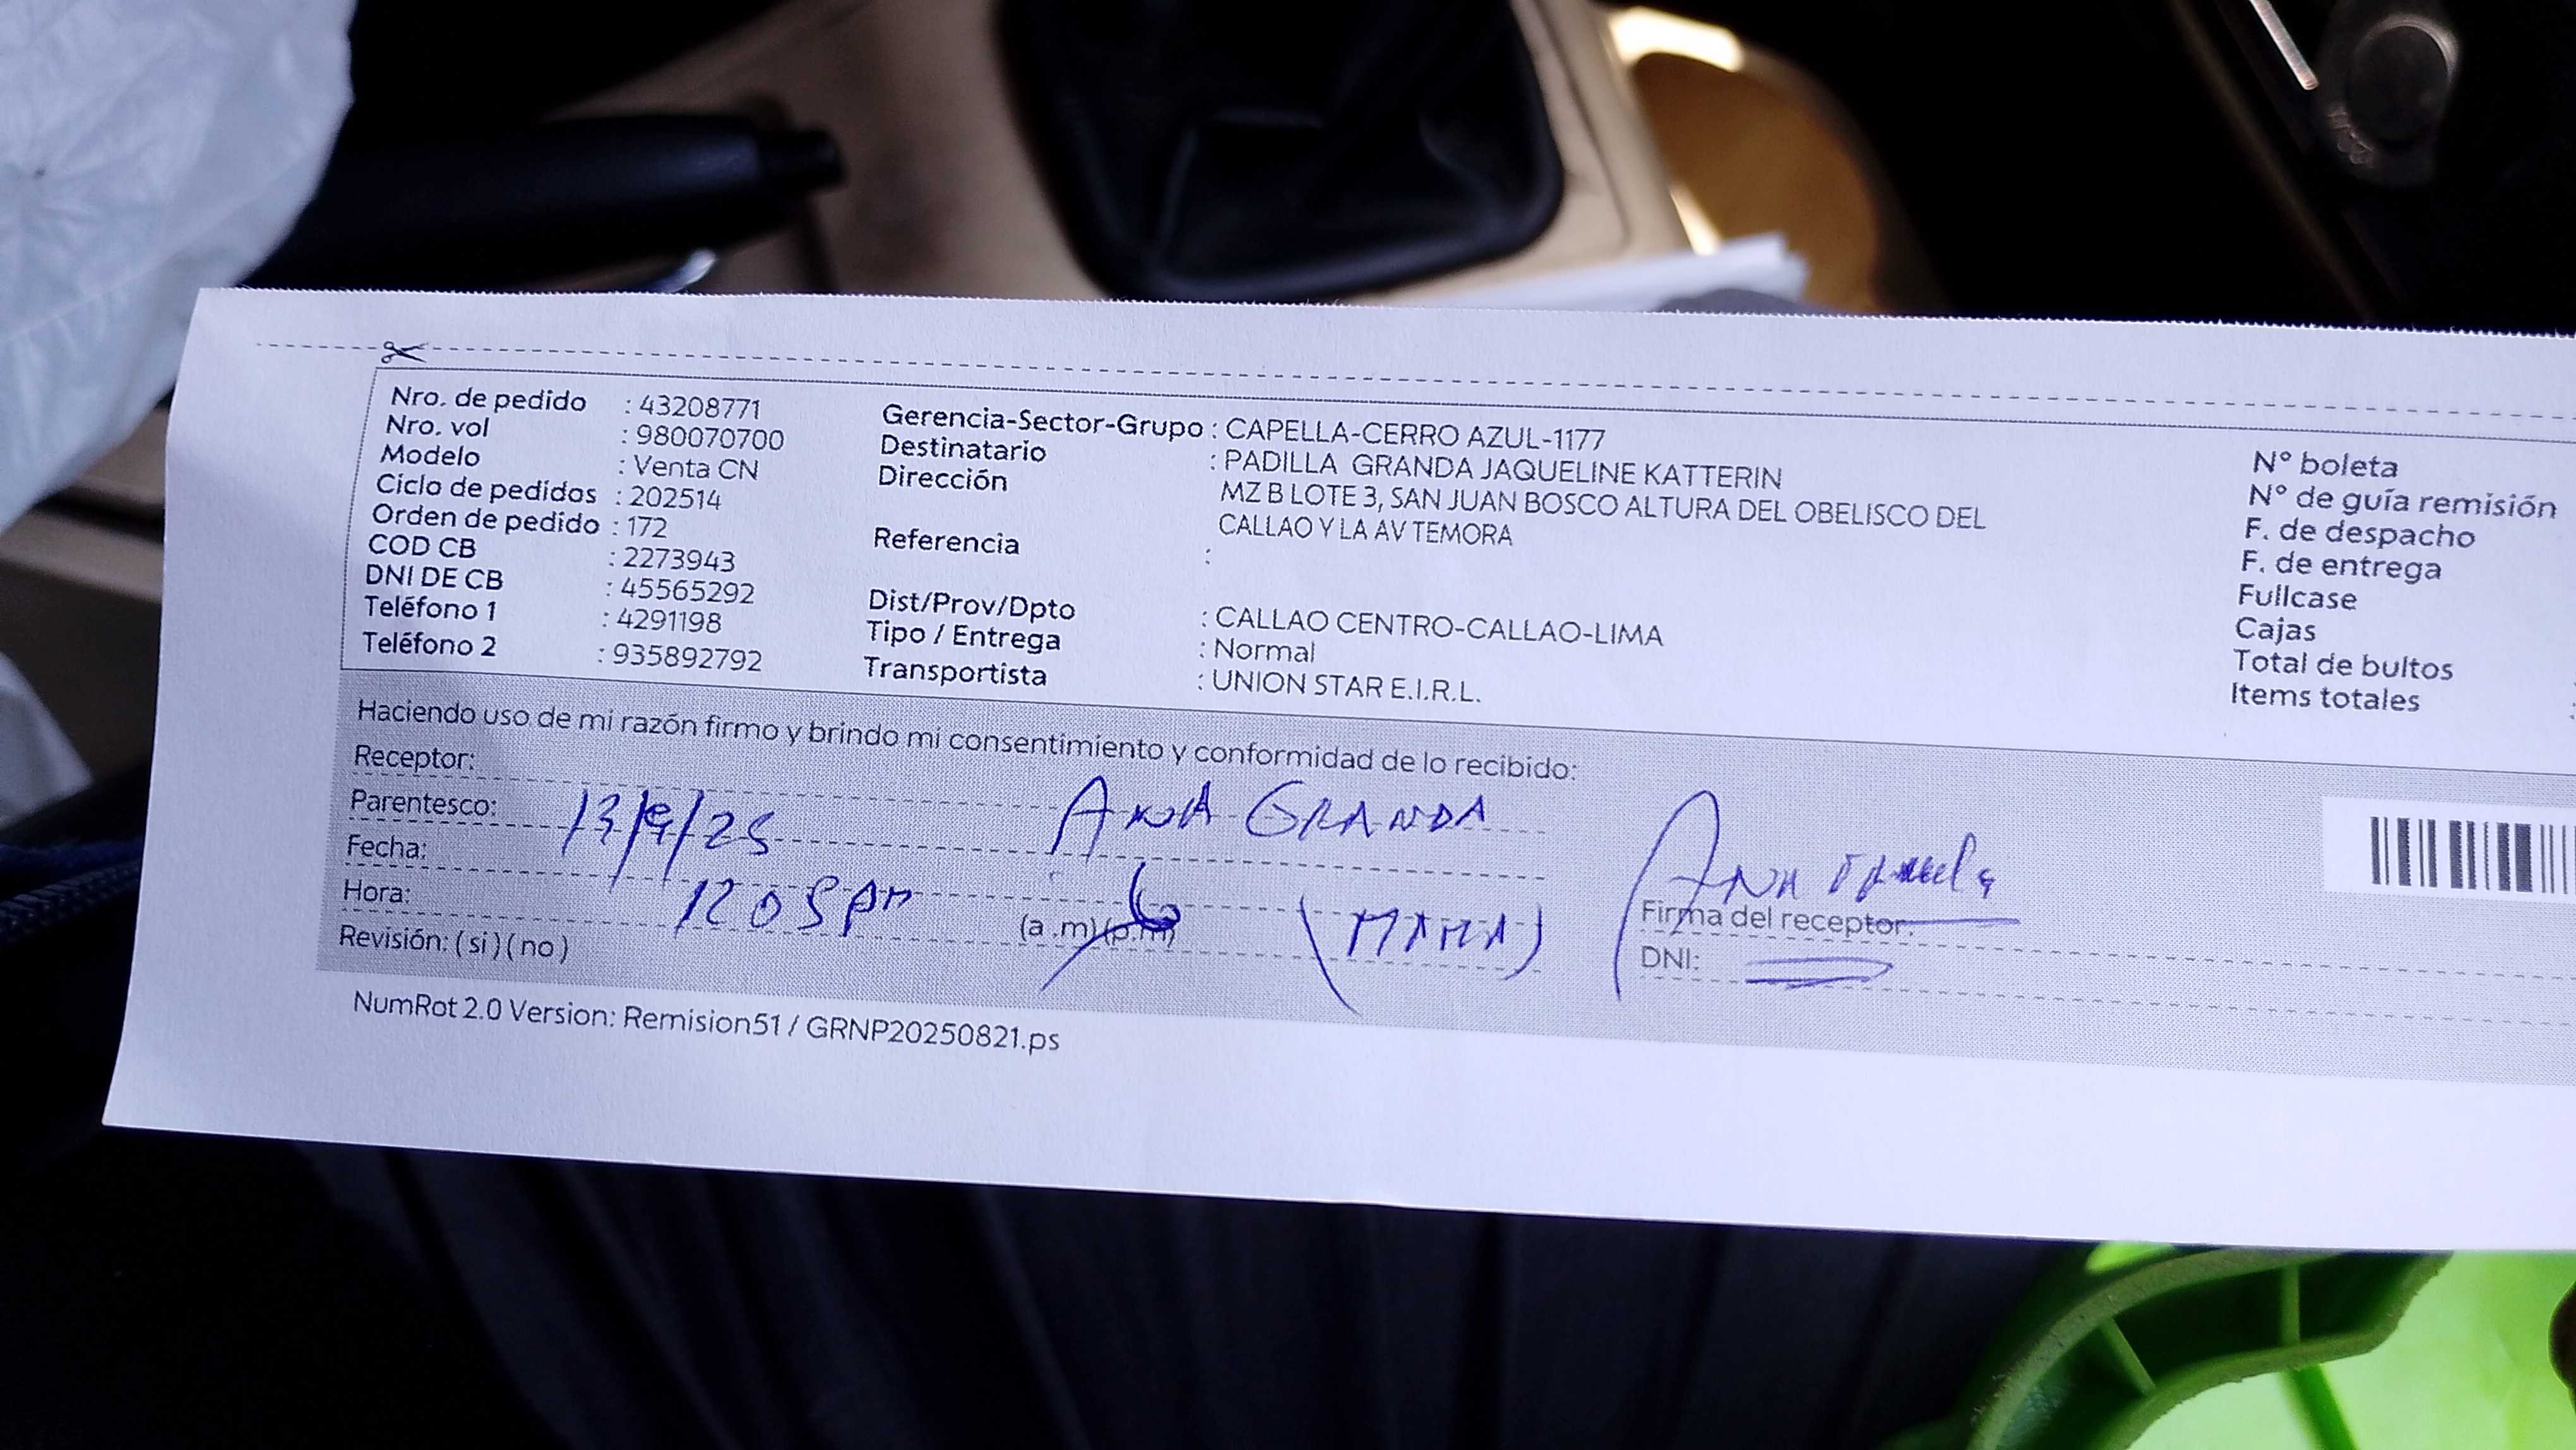 Nro. de pedido : 43208771
Nro. vol : 980070700
Modelo : Venta CN
Ciclo de pedidos : 202514
Orden de pedido : 172
COD CB : 2273943
DNI DE CB : 45565292
Teléfono 1 : 4291198
Teléfono 2 : 935892792
Gerencia-Sector-Grupo : CAPELLA-CERRO AZUL-1177
Destinatario : PADILLA GRANDA JAQUELINE KATTERIN
Dirección MZ B LOTE 3, SAN JUAN BOSCO ALTURA DEL OBELISCO DEL
CALLAO Y LA AV TEMORA
Referencia :
Dist/Prov/Dpto : CALLAO CENTRO-CALLAO-LIMA
Tipo / Entrega : Normal
Transportista : UNION STAR E.I.R.L.
N° boleta
N° de guía remisión
F. de despacho
F. de entrega
Fullcase
Cajas
Total de bultos
Items totales
Haciendo uso de mi razón firmo y brindo mi consentimiento y conformidad de lo recibido:
Receptor: ANA GRANDA
Parentesco: 13/9/25
Fecha:
Hora: 12 05 pm (a .m)(p.m) (MAMA)
Revisión: ( si ) ( no )
Ana
Firma del receptor:
DNI:
NumRot 2.0 Version: Remision51 / GRNP20250821.ps